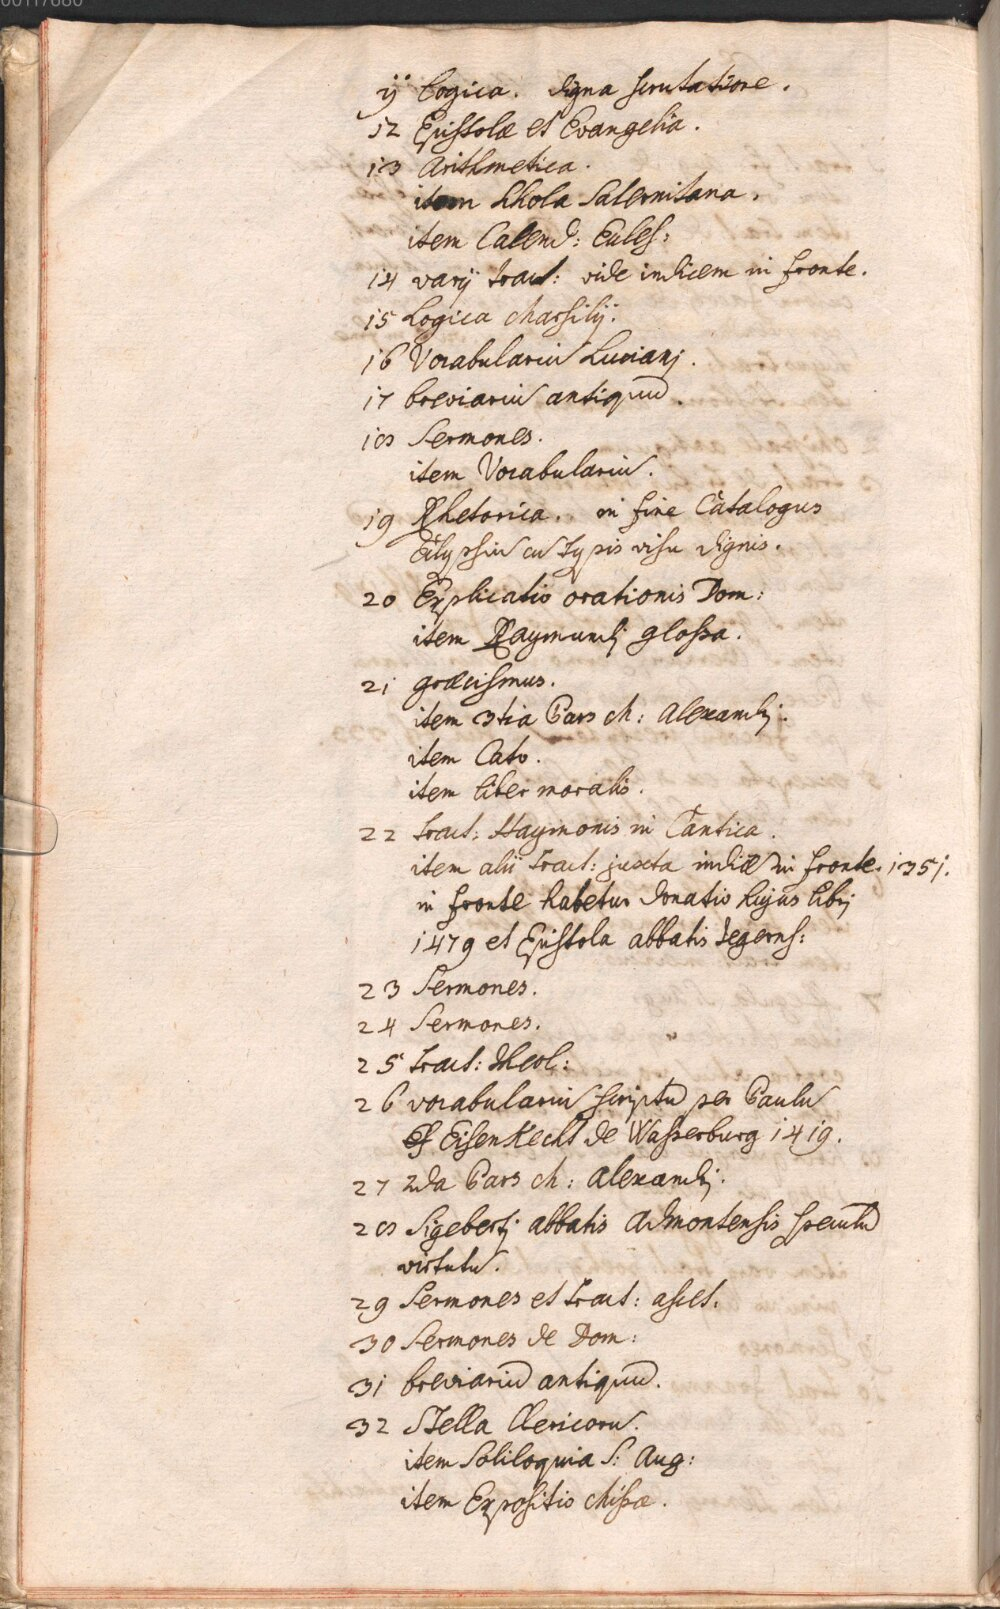 00117080
ÿ Logica. digna scrutatione.
12 Epistolæ et Evangelia.
13 Arithmetica.
item Schola Salernitana.
item Calend: Eccles:
14 varij tract: vide indicem in fronte.
15 Logica Marsilij.
16 Vocabulariũ Lucianj.
17 breviariũ antiquũ.
18 Sermones.
item Vocabulariũ.
19 Rhetorica. in fine Catalogus
cũ typis visu dignis.
20 Explicatio orationis Dom:
item Raymundj glossa.
21 græcismus.
item 3tia Pars M: Alexandrj.
item Cato.
item liber moralis.
22 tract: Haymonis in Cantica.
item alii tract: juxta indicẽ in fronte. 1351.
in fronte habetur donatio hujus librj
1479 et Epistola abbatis Tegerns:
23 Sermones.
24 Sermones.
25 tract: Theol:
26 vocabulariũ scriptũ per Paulũ
Eisenkecht de Wasserburg 1419.
27 2da Pars M: Alexandrj.
28 Sigebertj abbatis Admontensis speculũ
virtutũ.
29 Sermones et tract: ascet.
30 Sermones de Dom:
31 breviariũ antiquũ.
32 Stella Clericorũ.
item Soliloquia S: Aug:
item Expositio Missæ.